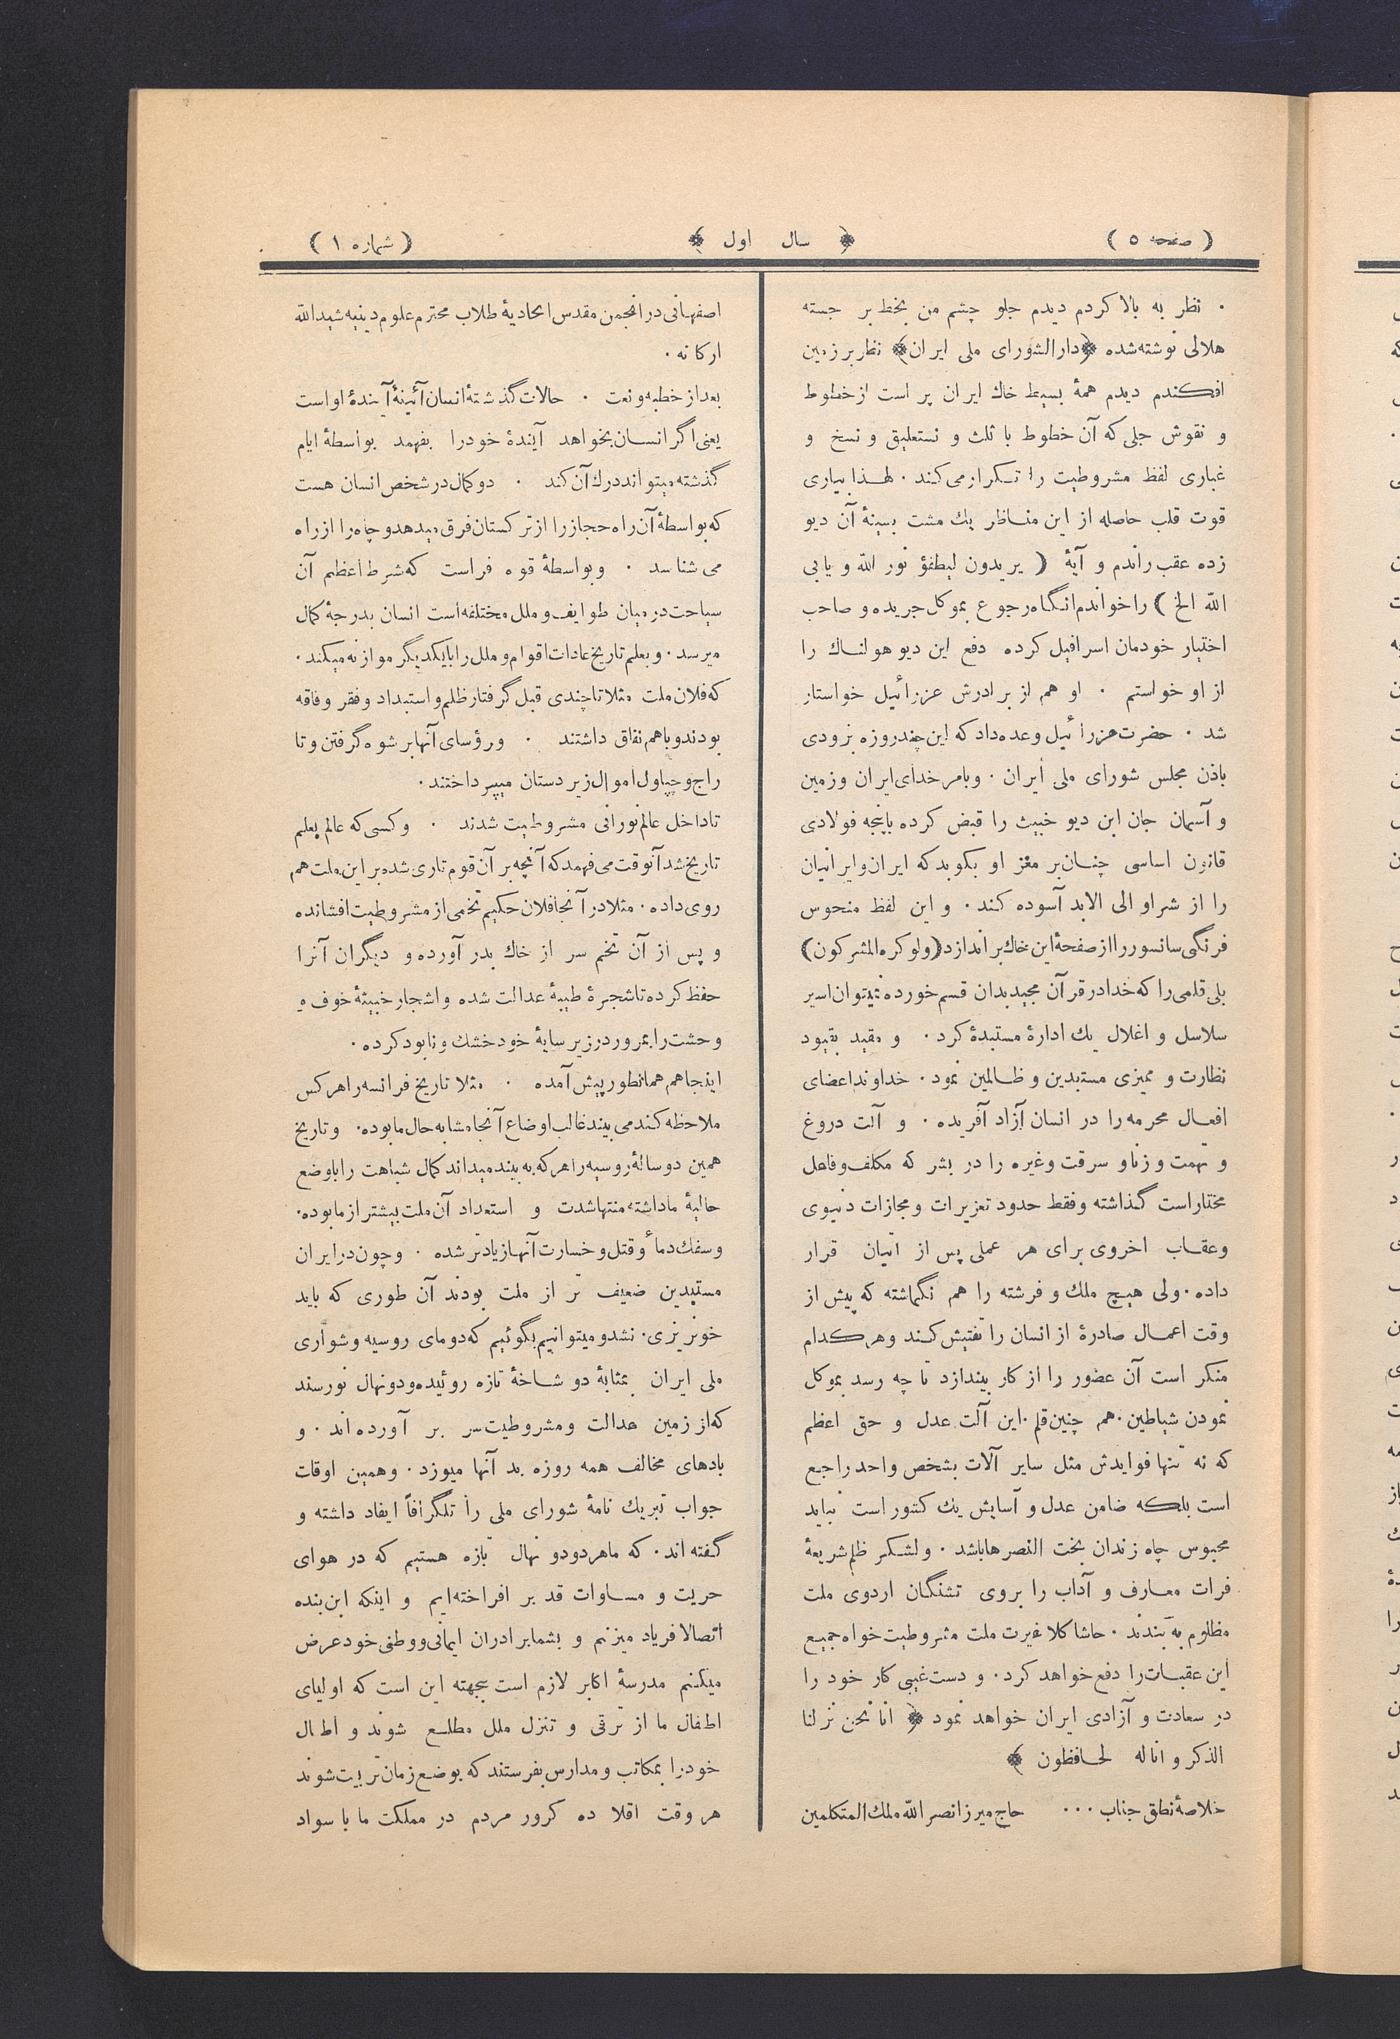 ( صفحه ۵ )
﴿ سال اول ﴾
( شماره ۱ )
. نظر به بالا کردم دیدم جلو چشم من بخط بر جسته
هلالی نوشته شده ﴿دار الشورای ملی ایران﴾ نظر بر زمین
افکندم دیدم همۀ بسیط خاك ایران پر است از خطوط
و نقوش جلی که آن خطوط با ثلث و نستعلیق و نسخ و
غباری لفظ مشروطیت را تکرار می کنند . لهذا بیاری
قوت قلب حاصله از این مناظر یك مشت بسینۀ آن دیو
زده عقب راندم و آیۀ ( یریدون لیطفؤ نور الله و یابی
الله الخ ) را خواندم انگاه رجوع بموکل جریده و صاحب
اختیار خودمان اسرافیل کرده دفع این دیو هولناك را
از او خواستم . او هم از برادرش عزرائیل خواستار
شد . حضرت عزرائیل وعده داد که این چند روزه بزودی
باذن مجلس شورای ملی ایران . و بامر خدای ایران و زمین
و آسمان جان این دیو خبیث را قبض کرده با پنجه فولادی
قانون اساسی چنان بر مغز او بکوبد که ایران و ایرانیان
را از شر او الی الابد آسوده کند . و این لفظ منحوس
فرنگی سانسور را از صفحۀ این خاك بر اندازد (ولو کره المشرکون)
بلی قلمی را که خدا در قرآن مجید بدان قسم خورده نمیتوان اسیر
سلاسل و اغلال یك ادارۀ مستبدۀ کرد . و مقید بقیود
نظارت و ممیزی مستبدین و ظالمین نمود . خداوند اعضای
افعال محرمه را در انسان آزاد آفریده . و آلت دروغ
و تهمت و زنا و سرقت وغیره را در بشر که مکلف و فاعل
مختار است گذاشته و فقط حدود تعزیرات و مجازات دنیوی
و عقاب اخروی برای هر عملی پس از اتیان قرار
داده . ولی هیچ ملك و فرشته را هم نگماشته که پیش از
وقت اعمال صادرۀ از انسان را تفتیش کنند و هر کدام
منکر است آن عضور را از کار بیندازد تا چه رسد بموکل
نمودن شیاطین . هم چنین قلم . این آلت عدل و حق اعظم
که نه تنها فوایدش مثل سایر آلات بشخص واحد راجع
است بلکه ضامن عدل و آسایش یك کشور است نباید
محبوس چاه زندان بخت النصرها باشد . و لشکر ظلم شریعۀ
فرات معارف و آداب را بروی تشنگان اردوی ملت
مظلوم به بندند . حاشا کلا غیرت ملت مشروطیت خواه جمیع
این عقبات را دفع خواهد کرد . و دست غیبی کار خود را
در سعادت و آزادی ایران خواهد نمود ﴿ انا نحن نزلنا
الذکر و انا له لحافظون ﴾
خلاصۀ نطق جناب ... حاج میرزا نصر الله ملك المتکلمین
اصفهانی در انجمن مقدس اتحادیۀ طلاب محترم علوم دینیه شید الله
ارکانه .
بعد از خطبه و نعت . حالات گذشتۀ انسان آئینۀ آیندۀ او است
یعنی اگر انسان بخواهد آیندۀ خود را بفهمد بواسطۀ ایام
گذشته میتواند درك آن کند . دو کمال در شخص انسان هست
که بواسطۀ آن راه حجاز را از ترکستان فرق میدهد و چاه را از راه
می شناسد . و بواسطۀ قوه فراست که شرط اعظم آن
سیاحت در میان طوایف و ملل مختلفه است انسان بدرجۀ کمال
میرسد . و بعلم تاریخ عادات اقوام و ملل را با یکدیگر موازنه میکند .
که فلان ملت مثلا تا چندی قبل گرفتار ظلم و استبداد و فقر و فاقه
بودند و با هم نفاق داشتند . و رؤسای آنها بر شوه گرفتن و تا
راج و چپاول اموال زیر دستان میپرداختند .
تا داخل عالم نورانی مشروطیت شدند . و کسی که عالم بعلم
تاریخ شد آنوقت می فهمد که آنچه بر آن قوم تاری شده بر این ملت هم
روی داده . مثلا در آنجا فلان حکیم تخمی از مشروطیت افشانده
و پس از آن تخم سر از خاك بدر آورده و دیگران آنرا
حفظ کرده تا شجرۀ طیبۀ عدالت شده و اشجار خبیثۀ خوف و
وحشت را بمرور در زیر سایۀ خود خشك و نابود کرده .
اینجا هم همانطور پیش آمده . مثلا تاریخ فرانسه را هر کس
ملاحظه کند می بیند غالب اوضاع آنجا مشابه حال ما بوده . و تاریخ
همین دو سالۀ روسیه را هر که به بیند میداند کمال شباهت را با وضع
حالیۀ ما داشته منتها شدت و استعداد آن ملت بیشتر از ما بوده .
و سفك دمأ و قتل و خسارت آنها زیادتر شده . و چون در ایران
مستبدین ضعیف تر از ملت بودند آن طوری که باید
خونریزی . نشد و میتوانیم بگوئیم که دومای روسیه و شورای
ملی ایران بمثابۀ دو شاخۀ تازه روئیده و دو نهال نورسند
که از زمین عدالت و مشروطیت سر بر آورده اند . و
بادهای مخالف همه روزه بد آنها میوزد . و همین اوقات
جواب تبریك نامۀ شورای ملی را تلگرافاً ایفاد داشته و
گفته اند . که ما هر دو دو نهال تازه هستیم که در هوای
حریت و مساوات قد بر افراخته ایم و اینکه این بنده
اتصالا فریاد میزنم و بشما برادران ایمانی و وطنی خود عرض
میکنم مدرسۀ اکابر لازم است بجهته این است که اولیای
اطفال ما از ترقی و تنزل ملل مطلع شوند و اطفال
خود را بمکاتب و مدارس بفرستند که بوضع زمان تربیت شوند
هر وقت اقلا ده کرور مردم در مملکت ما با سواد